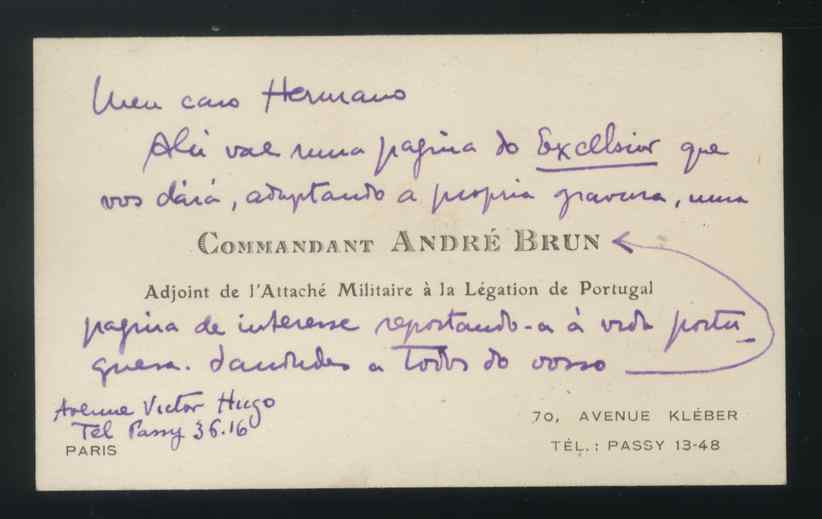 Meu caro Hermano
Ahi vae uma pagina do Excelsior que
vos dará, adaptando a propria gravura, uma
COMMANDANT ANDRÉ BRUN
Adjoint de l'Attaché Militaire à la Légation de Portugal
pagina de interesse reportando-a á vida portu-
guesa. Saudades a todos do vosso
Avenue Victor Hugo
Tel Passy 36.16
PARIS
70, AVENUE KLÉBER
TÉL. : PASSY 13-48